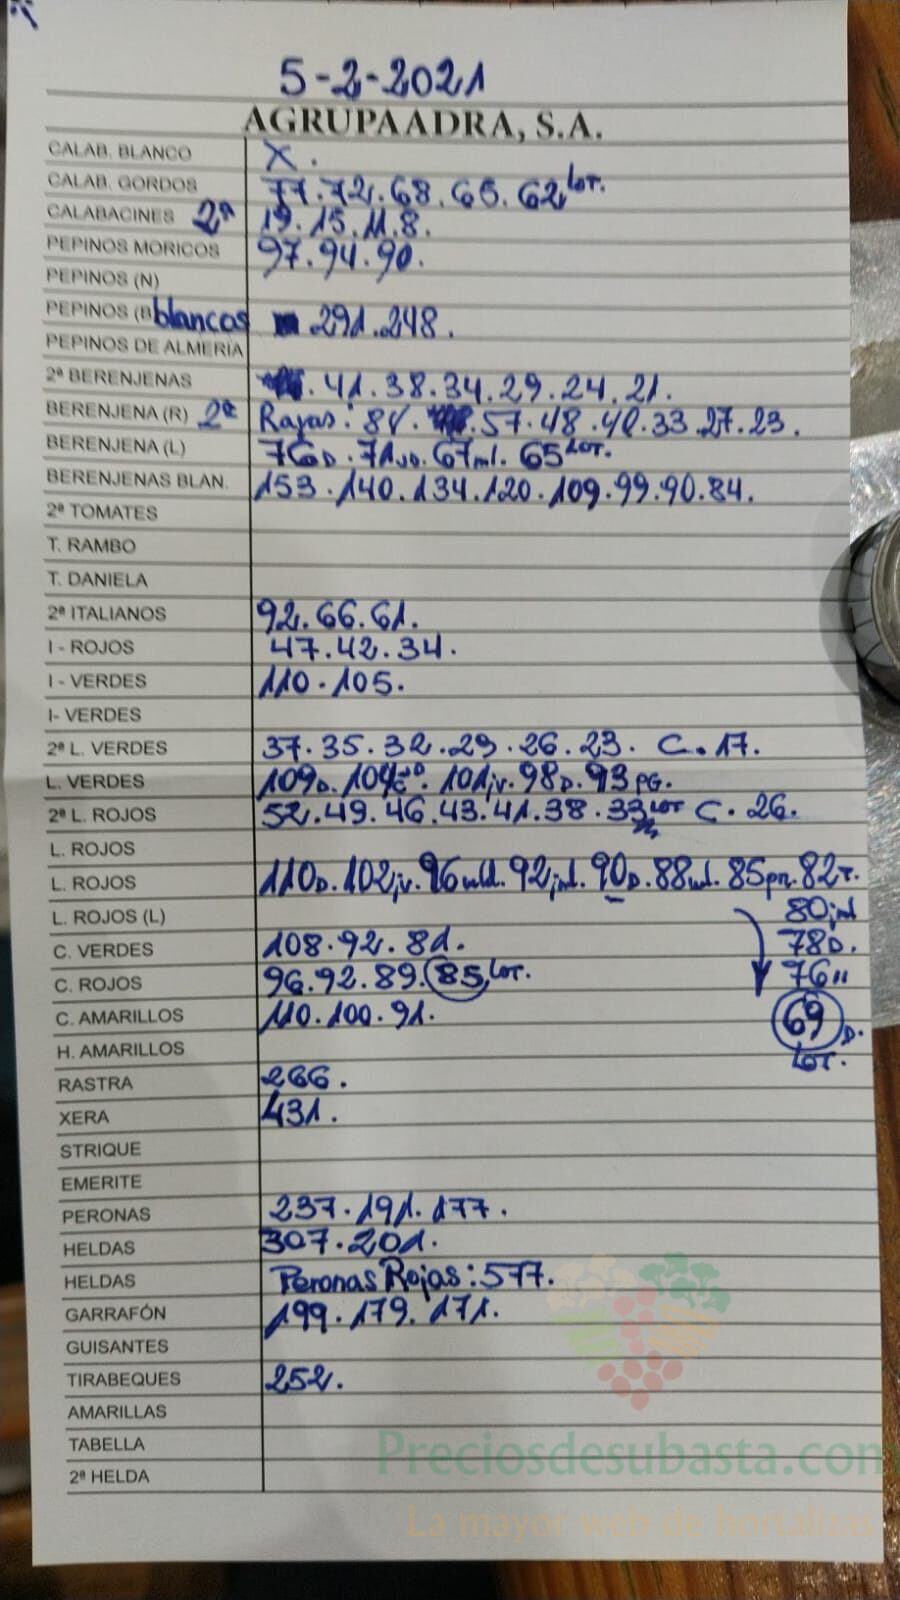 5-2-2021
AGRUPAADRA, S.A.
CALAB. BLANCO X.
CALAB. GORDOS 77.72.68.65.62 LOT.
CALABACINES 2ª 19.15.11.8.
PEPINOS MORICOS 97.94.90.
PEPINOS (N)
PEPINOS (B blancos 291.248.
PEPINOS DE ALMERÍA
2ª BERENJENAS .41.38.34.29.24.21.
BERENJENA (R) 2ª Rayas: 81. .57.48.40.33.27.23.
BERENJENA (L) 76D.71JD.67ml.65 LOT.
BERENJENAS BLAN. 153.140.134.120.109.99.90.84.
2ª TOMATES
T. RAMBO
T. DANIELA
2ª ITALIANOS 92.66.61.
I - ROJOS 47.42.34.
I - VERDES 110.105.
I- VERDES
2ª L. VERDES 37.35.32.29.26.23. C.17.
L. VERDES 109D.104.101jv.98D.93PG.
2ª L. ROJOS 52.49.46.43.41.38.33 LOT C.26.
L. ROJOS
L. ROJOS 110D.102jv.96.92jml.90D.88ml.85pn.82T.
L. ROJOS (L) 80jml
C. VERDES 108.92.81. 78D.
C. ROJOS 96.92.89.85 LOT. 76"
C. AMARILLOS 110.100.91. 69D.
H. AMARILLOS LOT.
RASTRA 266.
XERA 431.
STRIQUE
EMERITE
PERONAS 237.191.177.
HELDAS 307.201.
HELDAS Peronas Rojas: 577.
GARRAFÓN 199.179.171.
GUISANTES
TIRABEQUES 252.
AMARILLAS
TABELLA
Preciosdesubasta.com
2ª HELDA
La mayor web de hortalizas